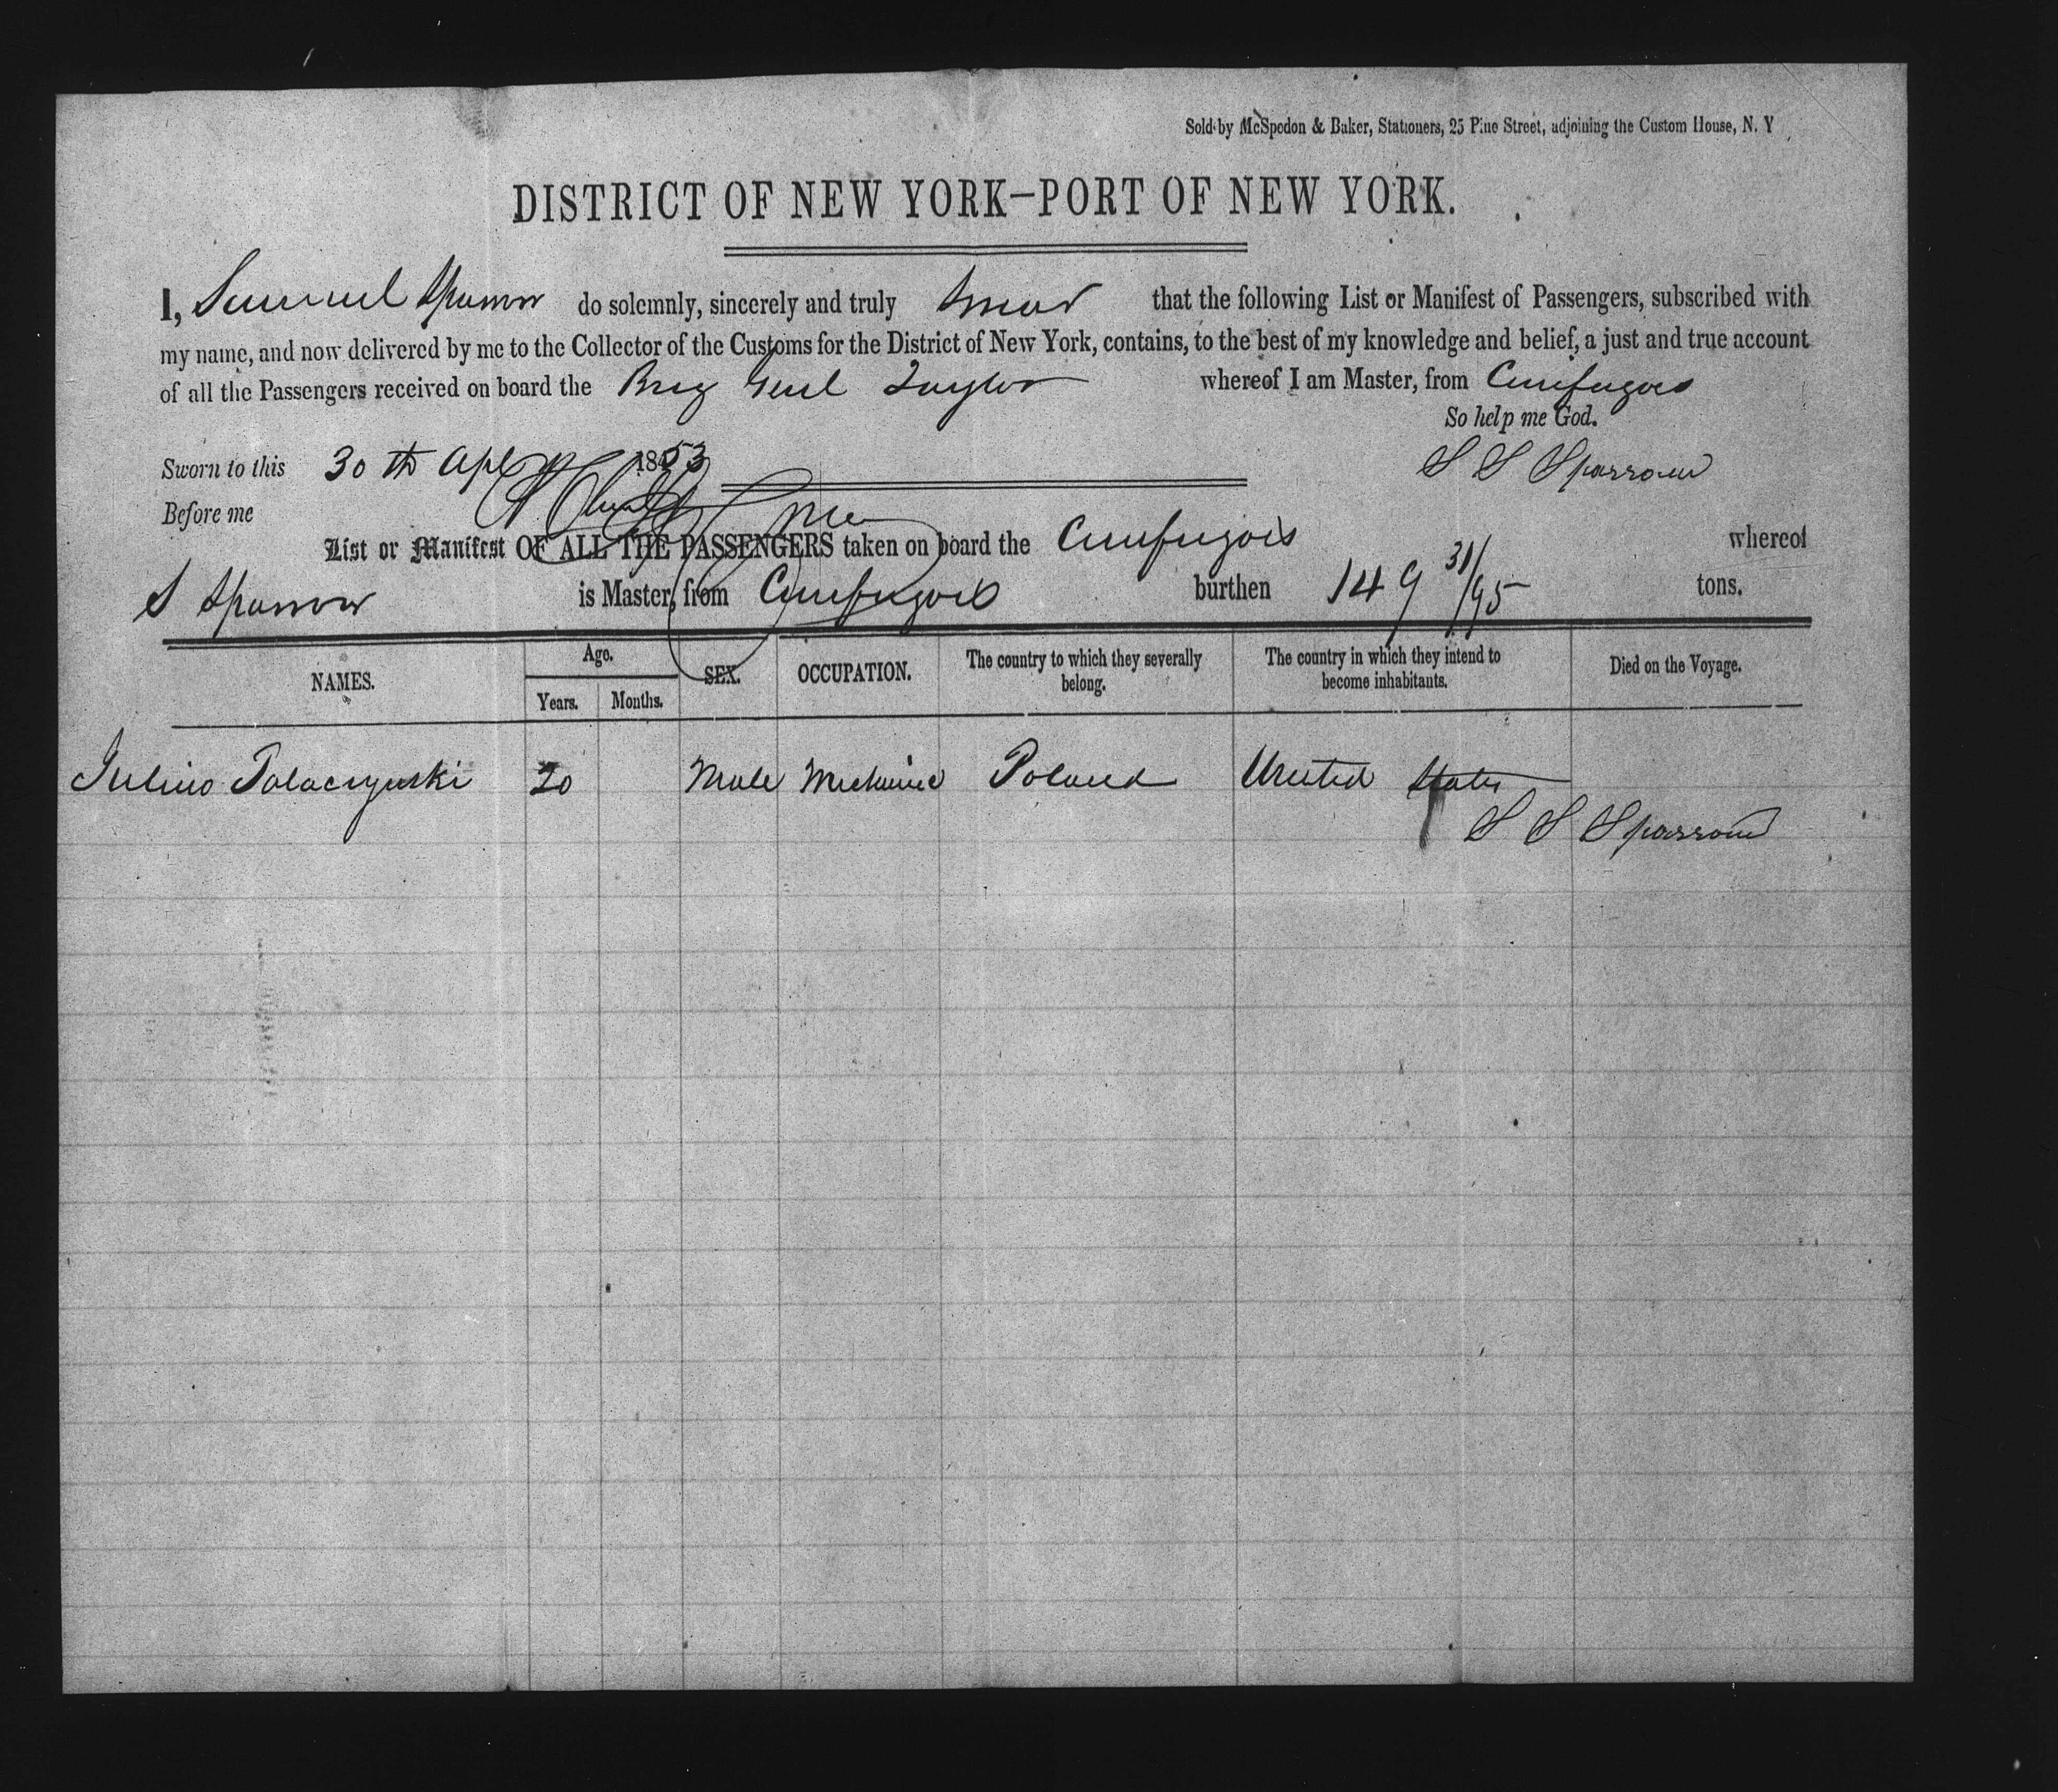 Sold by McSpedon & Baker, Stationers, 25 Pine Street, adjoining the Custom House, N. Y
DISTRICT OF NEW YORK—PORT OF NEW YORK.
I, Samuel Sparrow do solemnly, sincerely and truly swear that the following List or Manifest of Passengers, subscribed with
my name, and now delivered by me to the Collector of the Customs for the District of New York, contains, to the best of my knowledge and belief, a just and true account
of all the Passengers received on board the Brig Genl Taylor whereof I am Master, from Cienfuegos
So help me God.
Sworn to this 30th Apl 1853 S S Sparrow
Before me
List or Manifest OF ALL THE PASSENGERS taken on board the Cienfuegos whereof
S Sparrow is Master, from Cienfuegos burthen 149 31/95 tons.
NAMES. Age. Years. Months. SEX. OCCUPATION. The country to which they severally belong. The country in which they intend to become inhabitants. Died on the Voyage.
Julius Palaczynski 20 Male Mechanic Poland United States
S S Sparrow